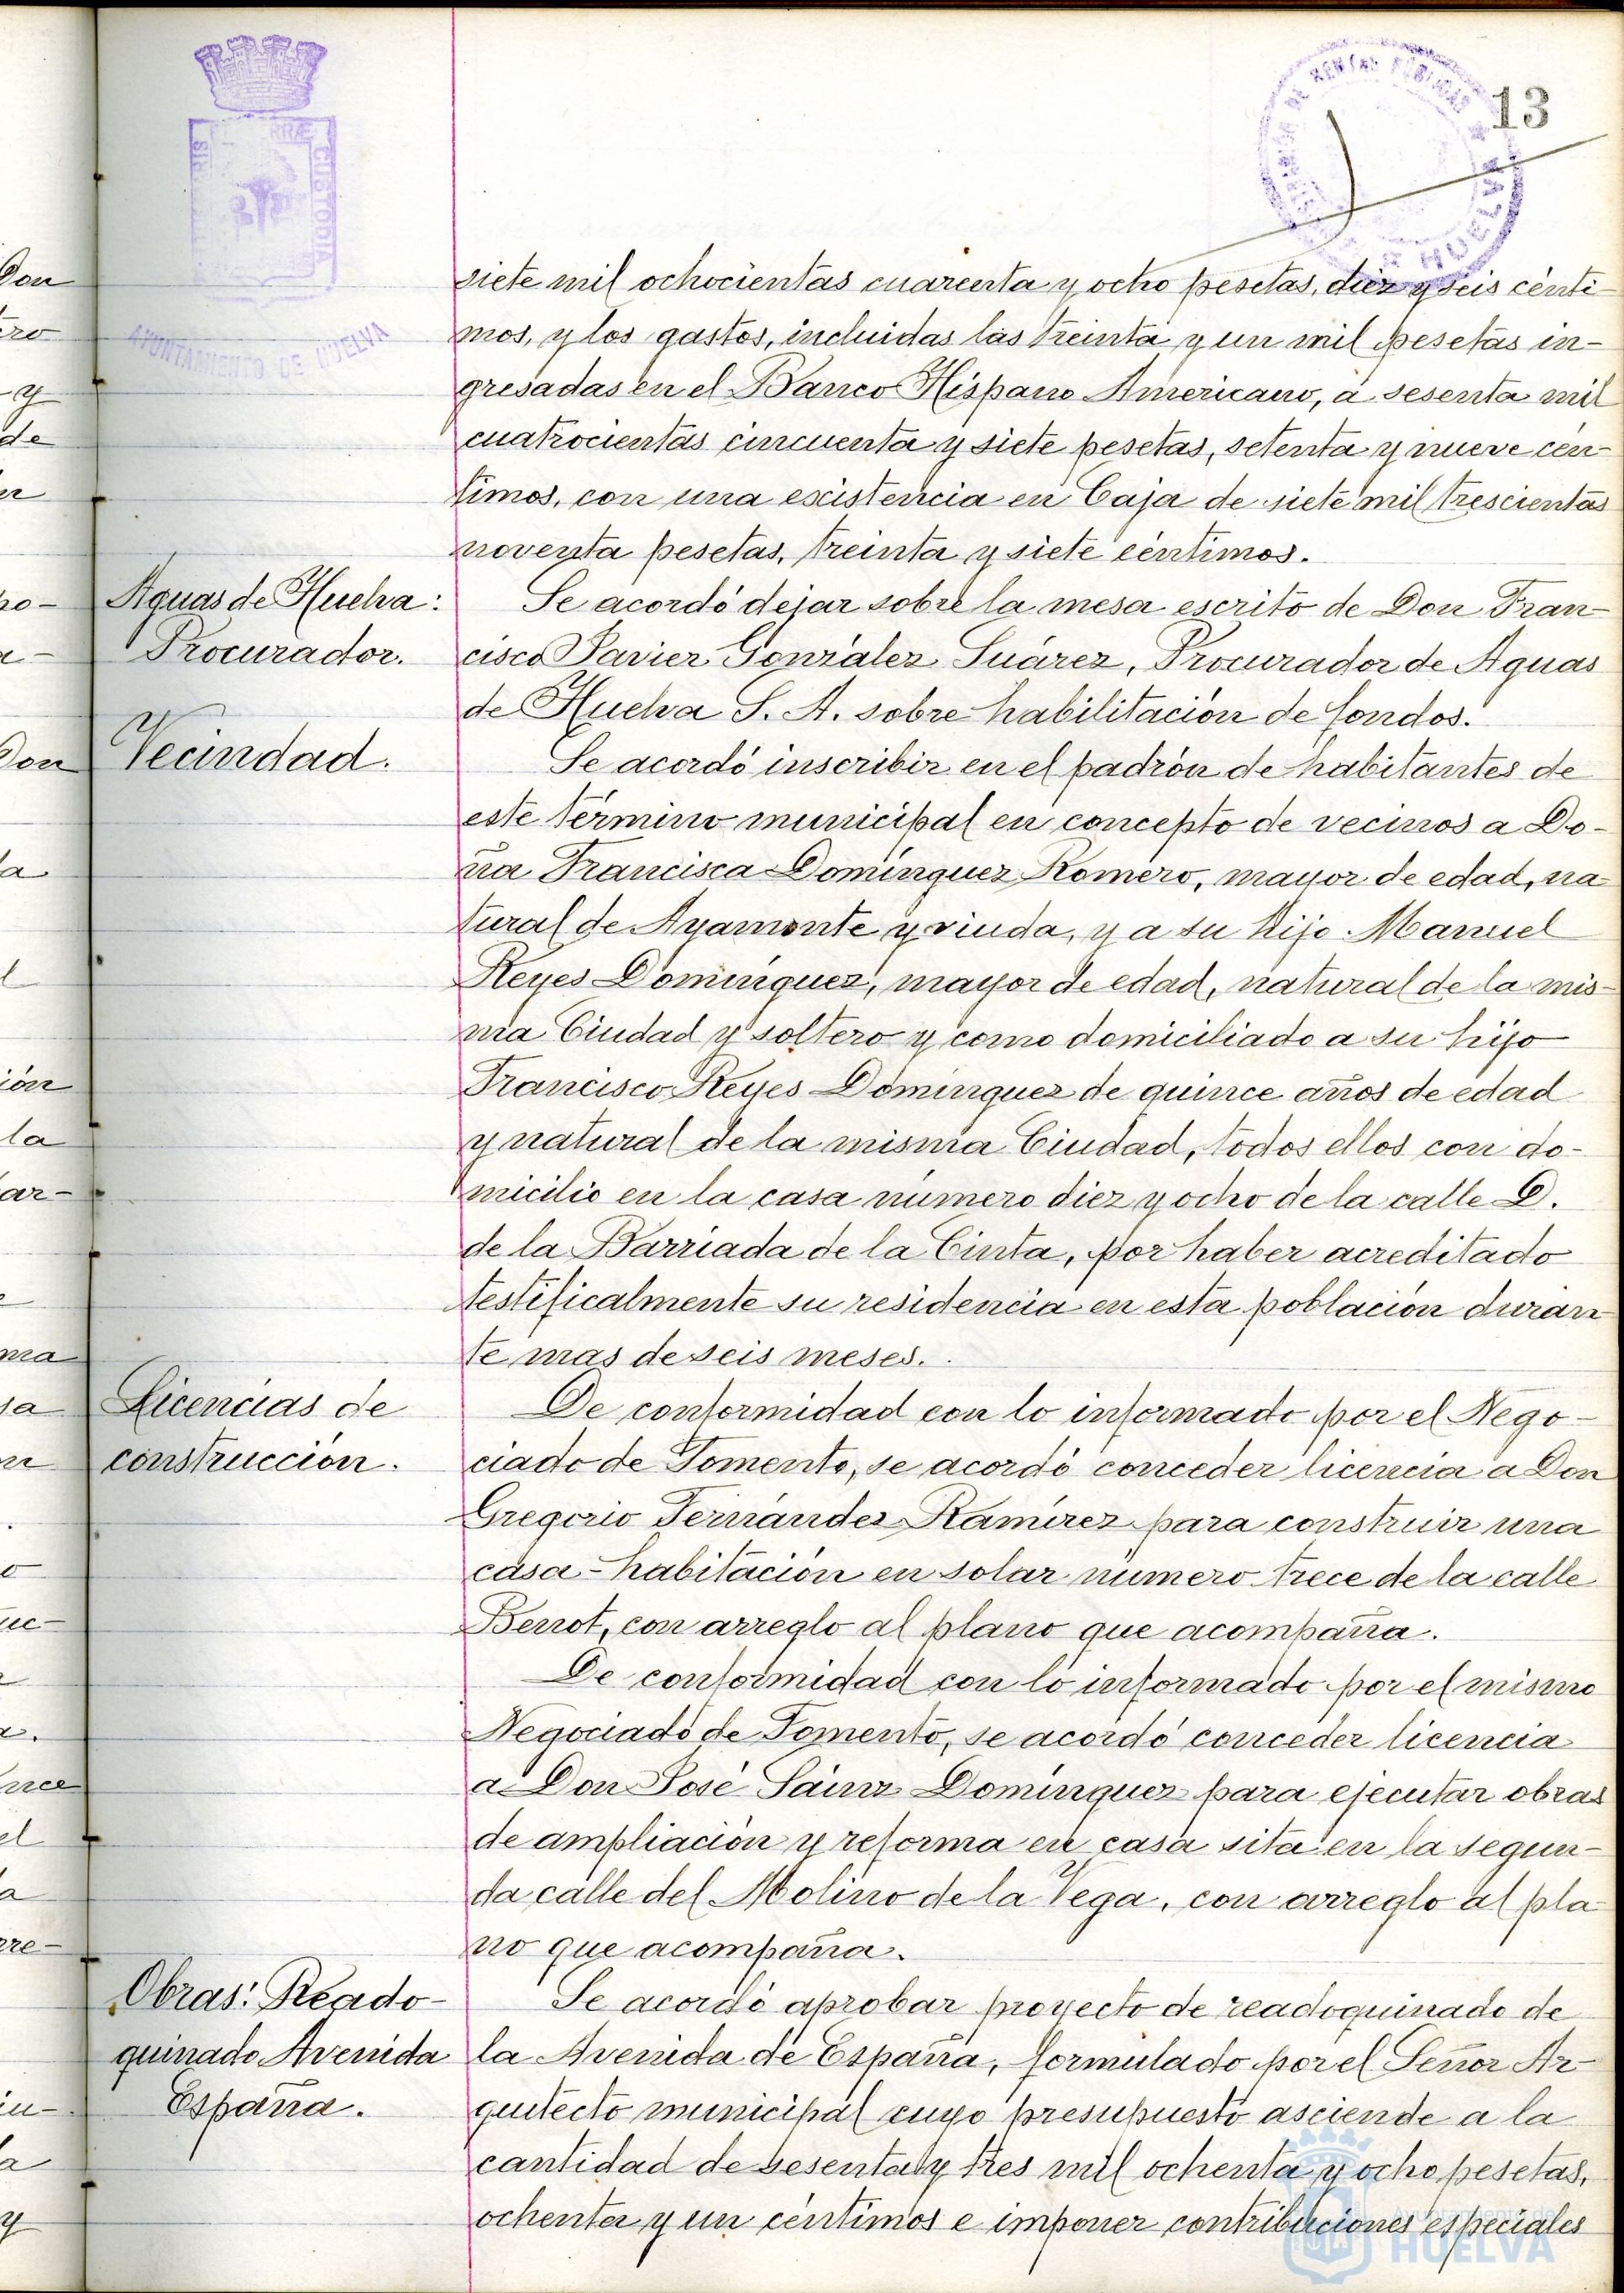 13
AYUNTAMIENTO DE HUELVA
CUSTODIA
HUELVA
siete mil ochocientas cuarenta y ocho pesetas, diez y seis cénti-
mos, y los gastos, incluidas las treinta y un mil pesetas in-
gresadas en el Banco Hispano Americano, a sesenta mil
cuatrocientas cincuenta y siete pesetas, setenta y nueve cén-
timos, con una existencia en Caja de siete mil trescientas
noventa pesetas, treinta y siete céntimos.
Aguas de Huelva:
Procurador.
Se acordó dejar sobre la mesa escrito de Don Fran-
cisco Javier González Suárez, Procurador de Aguas
de Huelva S. A. sobre habilitación de fondos.
Vecindad.
Se acordó inscribir en el padrón de habitantes de
este término municipal en concepto de vecinos a Do-
ña Francisca Domínguez Romero, mayor de edad, na-
tural de Ayamonte y viuda, y a su hijo Manuel
Reyes Domínguez, mayor de edad, natural de la mis-
ma Ciudad y soltero y como domiciliado a su hijo
Francisco Reyes Domínguez de quince años de edad
y natural de la misma Ciudad, todos ellos con do-
micilio en la casa número diez y ocho de la calle D.
de la Barriada de la Cinta, por haber acreditado
testificalmente su residencia en esta población duran-
te mas de seis meses.
Licencias de
construcción.
De conformidad con lo informado por el Nego-
ciado de Fomento, se acordó conceder licencia a Don
Gregorio Fernández Ramírez para construir una
casa-habitación en solar número trece de la calle
Berrot, con arreglo al plano que acompaña.
De conformidad con lo informado por el mismo
Negociado de Fomento, se acordó conceder licencia
a Don José Sáinz Domínguez para ejecutar obras
de ampliación y reforma en casa sita en la segun-
da calle del Molino de la Vega, con arreglo al pla-
no que acompaña.
Obras: Reado-
quinado Avenida
España.
Se acordó aprobar proyecto de readoquinado de
la Avenida de España, formulado por el Señor Ar-
quitecto municipal cuyo presupuesto asciende a la
cantidad de sesenta y tres mil ochenta y ocho pesetas,
ochenta y un céntimos e imponer contribuciones especiales
Ayuntamiento de
HUELVA